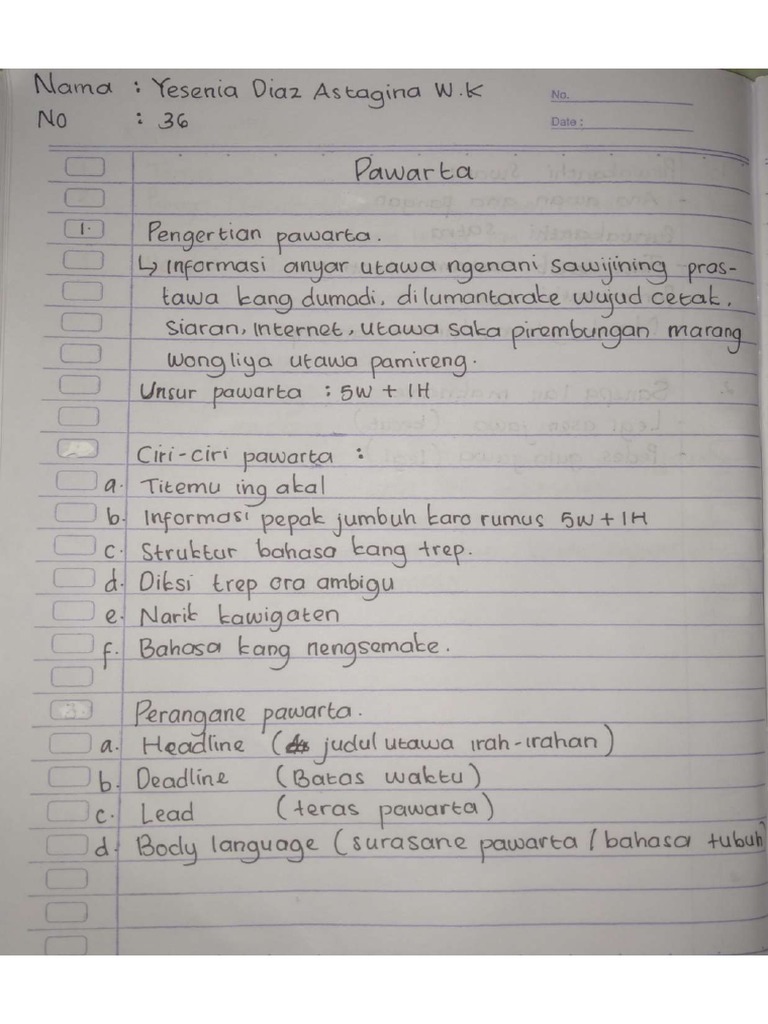 Nama : Yesenia Diaz Astagina W.K
No.
NO : 36
Date :
Pawarta
1. Pengertian pawarta.
↳ Informasi anyar utawa ngenani sawijining pras-
tawa kang dumadi, dilumantarake wujud cetak,
siaran, Internet, utawa saka pirembungan marang
wongliya utawa pamireng.
Unsur pawarta : 5W + 1H
Ciri-ciri pawarta :
a. Titemu ing akal
b. Informasi pepak jumbuh karo rumus 5W + 1H
c. Struktur bahasa kang trep.
d. Diksi trep ora ambigu
e. Narik kawigaten
f. Bahasa kang nengsemake.
3. Perangane pawarta.
a. Headline ( judul utawa irah-irahan)
b. Deadline (Batas waktu)
c. Lead (teras pawarta)
d. Body language (surasane pawarta / bahasa tubuh)